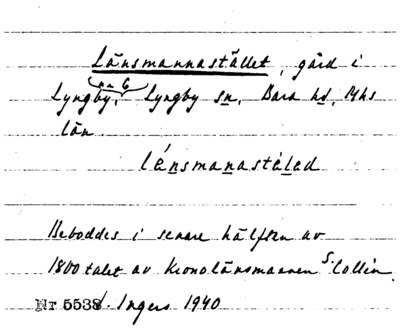 Länsmannastället, gård i
nr 6
Lyngby, Lyngby sn, Bara hd, Mhs
län
lénsmanastéled
Beboddes i senare hälften av
1800 talet av kronolänsmannen S. Collin.
Nr 5538. Ingers 1940